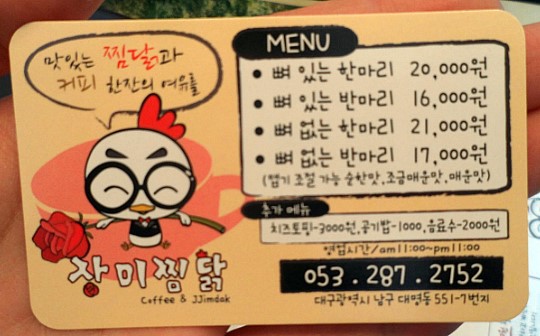 맛있는 찜닭과
커피 한잔의 여유를
장미찜닭
Coffee & JJimdak
MENU
• 뼈 있는 한마리 20,000원
• 뼈 있는 반마리 16,000원
• 뼈 없는 한마리 21,000원
• 뼈 없는 반마리 17,000원
(맵기 조절 가능 순한맛,조금매운맛,매운맛)
추가 메뉴
치즈토핑-3000원,공기밥-1000,음료수-2000원
영업시간/am11:00~pm11:00
053.287.2752
대구광역시 남구 대명동 551-7번지